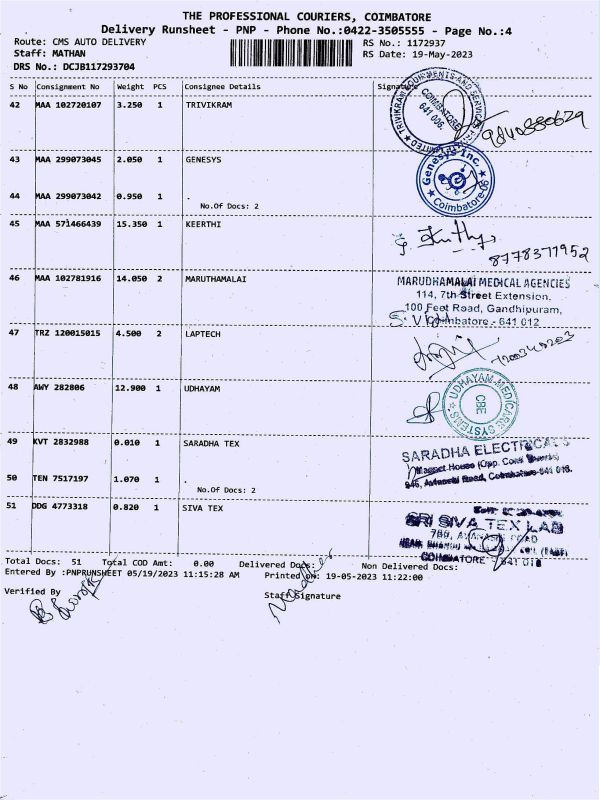 THE PROFESSIONAL COURIERS, COIMBATORE
Delivery Runsheet - PNP - Phone No.:0422-3505555 - Page No.:4
Route: CMS AUTO DELIVERY RS No.: 1172937
Staff: MATHAN RS Date: 19-May-2023
DRS No.: DCJB117293704
S No Consignment No Weight PCS Consignee Details Signature
42 MAA 102720107 3.250 1 TRIVIKRAM
COIMBATORE
641 006.
43 MAA 299073045 2.050 1 GENESYS
Genesys Inc.
Coimbatore-06
44 MAA 299073042 0.950 1 .
No.Of Docs: 2
45 MAA 571466439 15.350 1 KEERTHI
8778377952
46 MAA 102781916 14.050 2 MARUTHAMALAI
MARUDHAMALAI MEDICAL AGENCIES
114, 7th Street Extension,
100 Feet Road, Gandhipuram,
Coimbatore - 641 012
47 TRZ 120015015 4.500 2 LAPTECH
48 AWY 282806 12.900 1 UDHAYAM
UDHAYAM MEDICARE SYSTEMS
CBE
49 KVT 2832988 0.010 1 SARADHA TEX
SARADHA ELECTRICALS
50 TEN 7517197 1.070 1 .
No.Of Docs: 2
51 DDG 4773318 0.820 1 SIVA TEX
SRI SIVA TEX LAB
COIMBATORE - 641 018
Total Docs: 51 Total COD Amt: 0.00 Delivered Docs: Non Delivered Docs:
Entered By :PNPRUNSHEET 05/19/2023 11:15:28 AM Printed on: 19-05-2023 11:22:00
Verified By Staff Signature